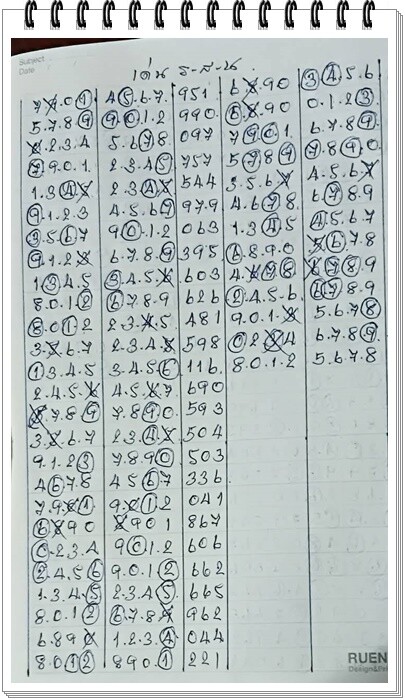 Subject
Date
เด่น ร-ส-น.
7.9.0.1 4.5.6.7. 951 6.8.90 3.4.5.6
5.7.8.9 9.0.1.2 990. 6.8.90 0.1.2.3
1.2.3.4 5.6.7.8 097 7.9.0.1. 6.7.8.9.
7.9.0.1. 2.3.4.5 757 5.7.8.9 7.8.9.0
1.3.4.5 2.3.4.5 544 3.5.6.7 4.5.6.7
9.1.2.3 4.5.6.7 979 4.6.7.8 6.7.8.9
3.5.6.7 9.0.1.2 063 1.3.4.5 4.5.6.7
9.1.2.3 6.7.8.9 395 6.8.9.0 5.6.7.8
1.3.4.5 3.4.5.6 603 4.6.7.8 6.7.8.9
8.0.1.2 6.7.8.9 626 2.4.5.6. 6.7.8.9
8.0.1.2 2.3.4.5 481 9.0.1.2 5.6.7.8
3.5.6.7 2.3.4.5 598 0.2.3.4 6.7.8.9
1.3.4.5 3.4.5.6 116. 8.0.1.2 5.6.7.8
2.4.5.6 4.5.6.7 690
5.7.8.9 7.8.9.0 593
3.5.6.7 2.3.4.5 504
9.1.2.3 7.8.9.0 503
4.6.7.8 4.5.6.7 336
7.9.0.1 9.0.1.2 041
6.8.90 8.901 867
0.2.3.4 9.0.1.2 606
2.4.5.6 9.0.1.2 662
1.3.4.5 2.3.4.5 665
8.0.1.2 6.7.8.9 962
6.8.9.0 1.2.3.4 044
8.0.1.2 8.9.0.1 221
RUEN